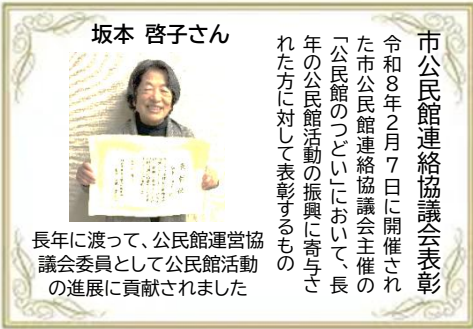 市公民館連絡協議会表彰
令和８年２月７日に開催され
た市公民館連絡協議会主催の
「公民館のつどい」において、長
年の公民館活動の振興に寄与さ
れた方に対して表彰するもの
坂本 啓子さん
長年に渡って、公民館運営協
議会委員として公民館活動
の進展に貢献されました